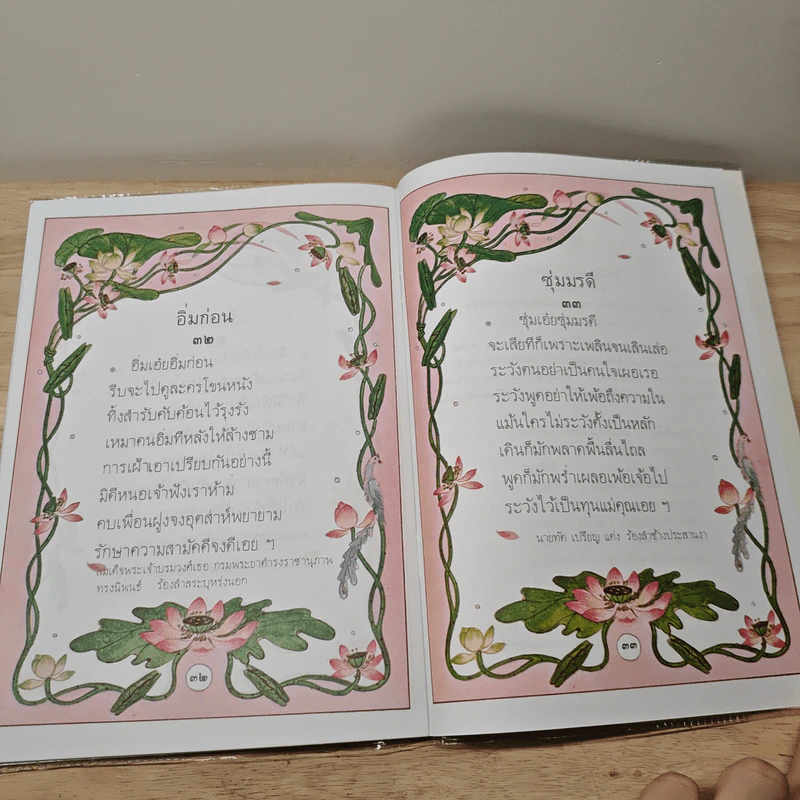 อิ่มก่อน
๓๒
๏ อิ่มเอ๋ยอิ่มก่อน
รีบจะไปดูละครโขนหนัง
ทิ้งสำรับคับค้อนไว้รุงรัง
เหมาคนอิ่มทีหลังให้ล้างชาม
การเฝ้าเอาเปรียบกันอย่างนี้
มิดีหนอเจ้าฟังเราห้าม
คบเพื่อนฝูงจงอุตส่าห์พยายาม
รักษาความสามัคคีจงดีเอย ฯ
สมเด็จพระเจ้าบรมวงศ์เธอ กรมพระยาดำรงราชานุภาพ
ทรงนิพนธ์ ร้องลำสระบุหร่งนอก
๓๒
ซุ่มมรดี
๓๓
๏ ซุ่มเอ๋ยซุ่มมรดี
จะเสียทีก็เพราะเพลินจนเสินเส่อ
ระวังตนอย่าเป็นคนใจเผอเรอ
ระวังพูดอย่าให้เพ้อถึงความใน
แม้นใครไม่ระวังตั้งเป็นหลัก
เดินก็มักพลาดพื้นลื่นไถล
พูดก็มักพร่ำเผลอเพ้อเจ้อไป
ระวังไว้เป็นทุนแม่คุณเอย ฯ
นายทัด เปรียญ แต่ง ร้องลำช้างประสานงา
๓๓